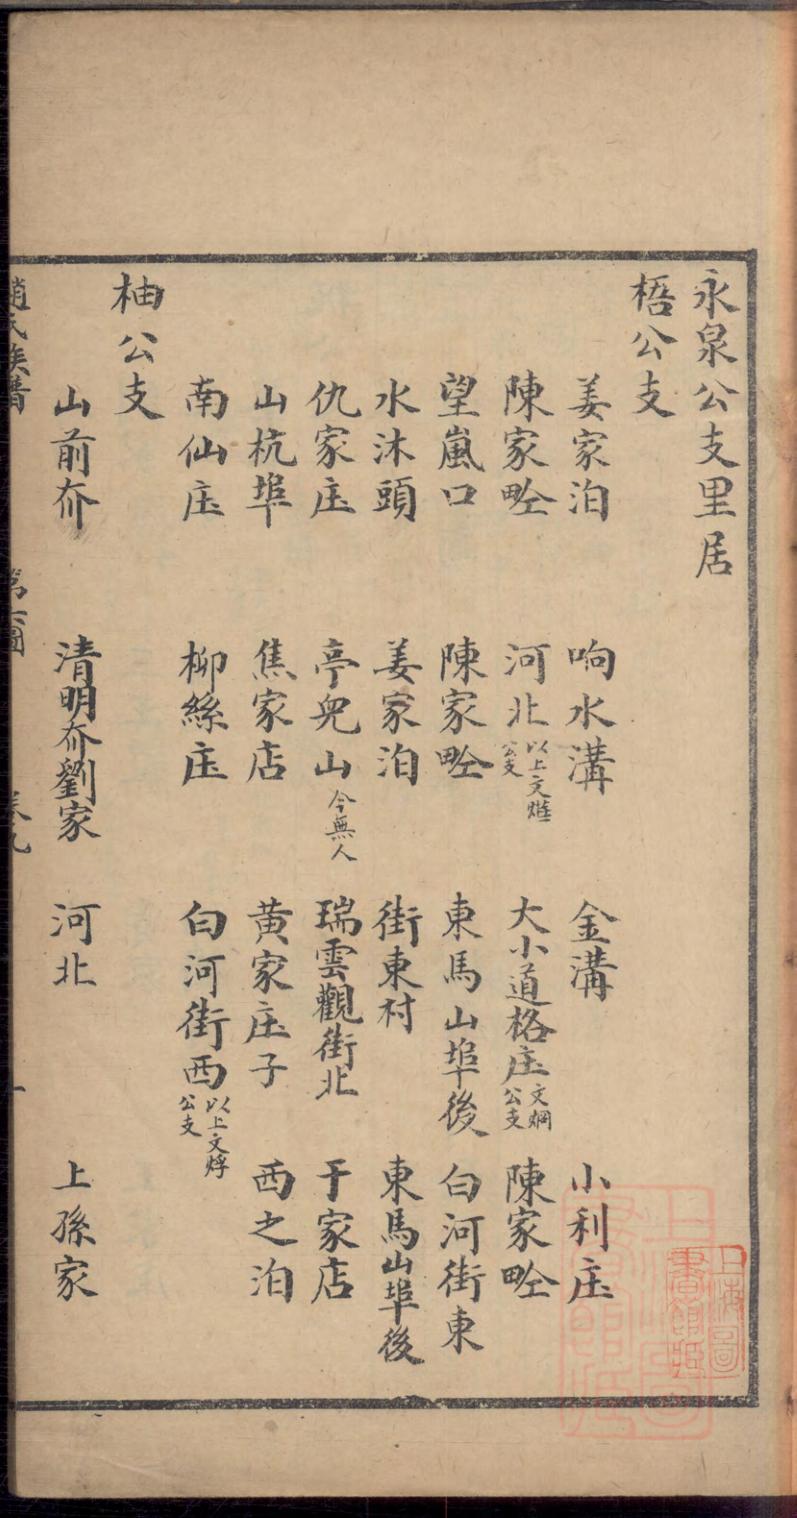 永泉公支里居
梧公支
姜家泊 响水溝 金溝 小利庄
陳家畛 河北以上文煃公支 大小道格庄文炯公支 陳家畛
望嵐口 陳家畛 東馬山埠後 白河街東
水沐頭 姜家泊 街東村 東馬山埠後
仇家庄 亭兜山今無人 瑞雲觀街北 于家店
山杭埠 焦家店 黄家庄子 西之泊
南仙庄 柳絲庄 白河街西以上文烰公支
柚公支
山前夼 清明夼劉家 河北 上孫家
趙氏族譜 卷九 一
上海圖書館藏